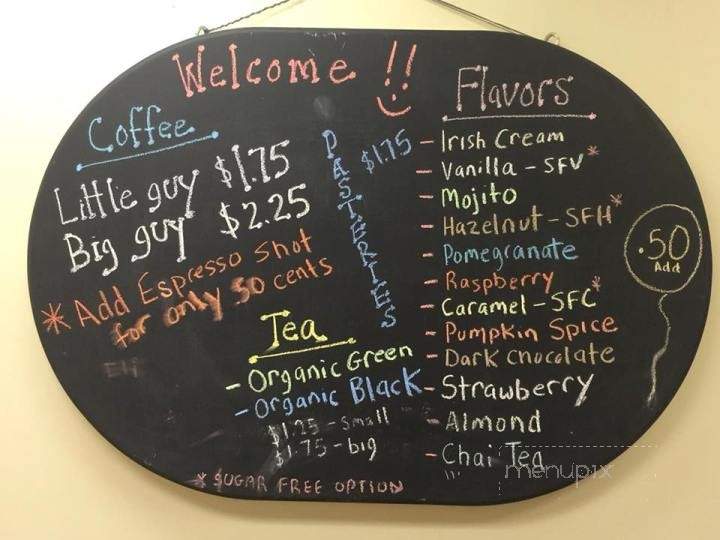 Welcome!!
Coffee
Little guy $1.75
Big guy $2.25
* Add Espresso Shot
for only 50 cents
PASTERIES
$1.75
Tea
- Organic Green
- Organic Black
$1.25 - Small
$1.75 - big
* SUGAR FREE OPTION
Flavors
- Irish Cream
- Vanilla - SFV*
- Mojito
- Hazelnut - SFH*
- Pomegranate
- Raspberry
- Caramel - SFC*
- Pumpkin Spice
- Dark Chocolate
- Strawberry
- Almond
- Chai Tea
.50
Add
menupix